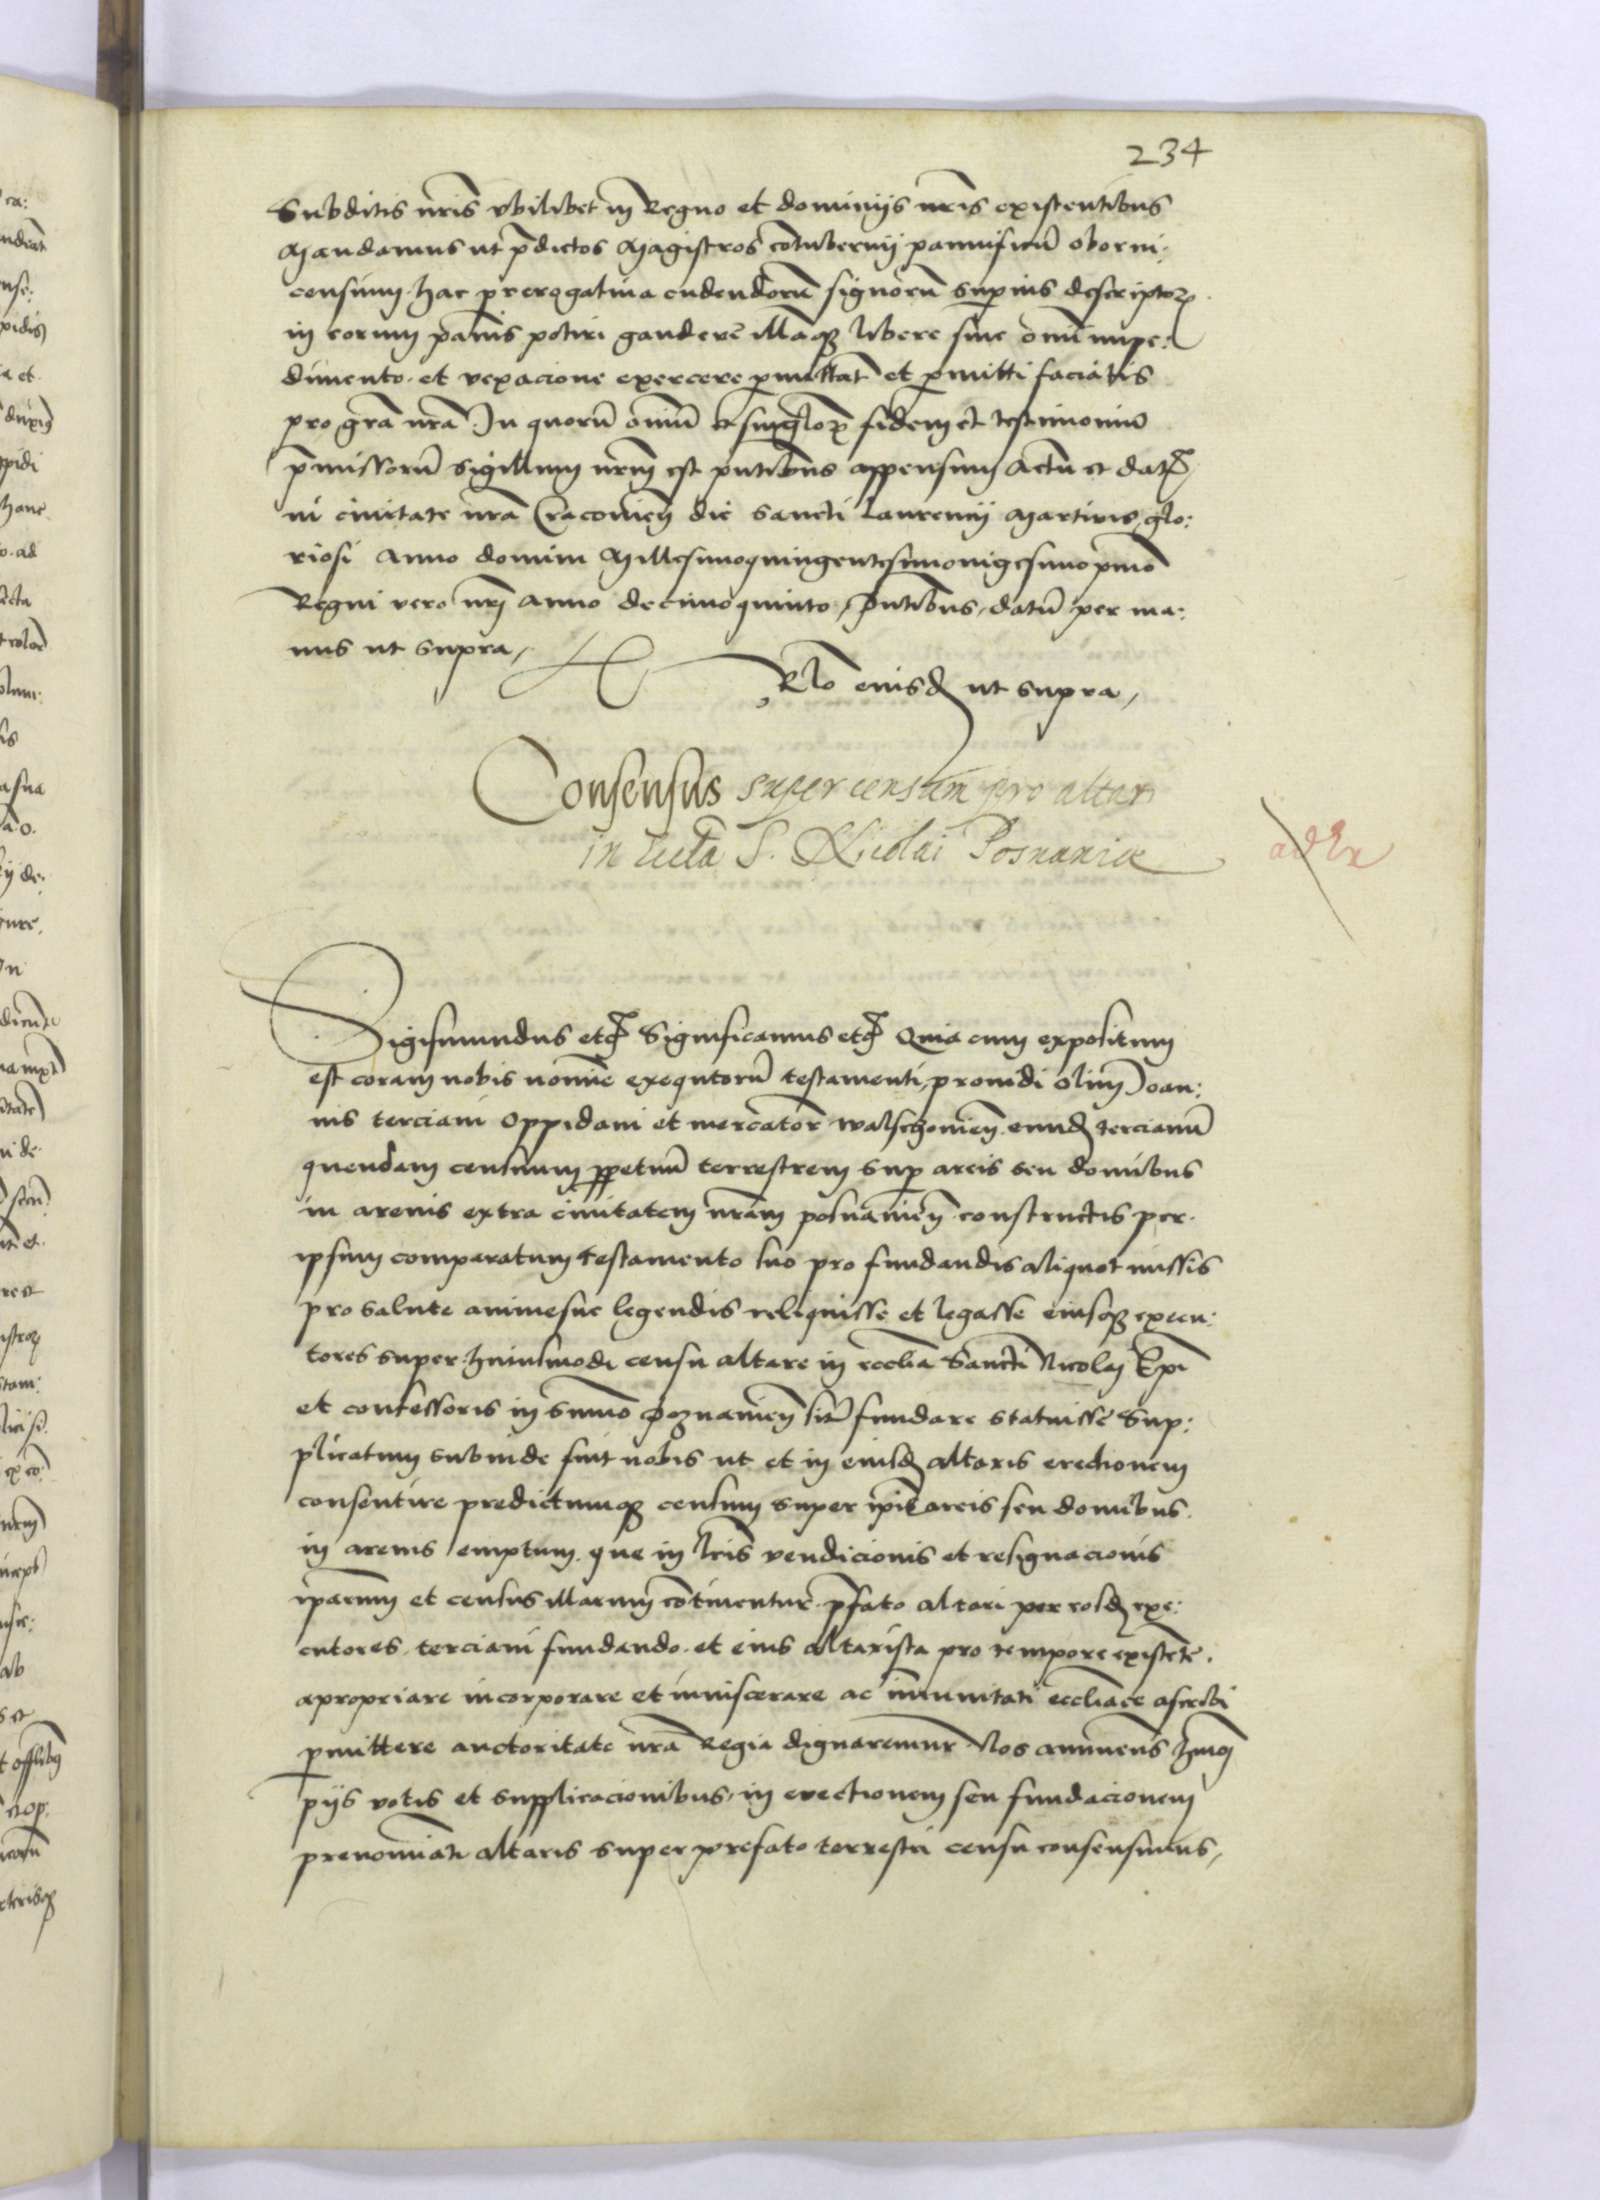 234
Subditis nr̃is vbilibet in Regno et dominijs nr̃is existentibus
Mandamus ut p̃dictos Magistros cõtubernij pannificũ oborni:
censium hac prerogativa cudendorũ signorũ superius descriptoꝝ
in eorum pãnis potiri gaudere illaqꝫ libere sine om̃i impe:
dimento et vexacione exercere p̱mittat̃ et p̱mitti faciatis
pro gr̃a nr̃a In quorũ om̃iũ et singl̃oꝝ fidem et testimoniũ
p̃missorũ sigillum nr̃m est pñtibus appensum Actũ et dat̃
in civitate nr̃a Cracovień die Sancti Laurencij Martiris glo:
riosi Anno domini Millesimoquingentesimovigesimopr̃mo
Regni vero nr̃j Anno decimoquinto, pñtibus, datũ per ma:
nus ut supra,
Rlõ eiusd̃ ut supra,
Consensus super censum pro altari
in Eccl̃a S. Nicolai Posnaniæ
Sigismundus etc̃ Significamus etc̃ Quia cum expositum
est coram nobis nomĩe exequtorũ testamenti, providi olim Ioan:
nis terciani Oppidani et mercator̃ walschovień eund̃ tercianũ
quendam censum ꝑpetuũ terrestrem sup̱ areis seu domibus
in arenis extra civitatem nr̃am posnanień constructis per
ipsum comparatum testamento suo pro fundandis aliquot missis
pro salute anime sue legendis reliquisse et legasse eiusqꝫ execu:
tores super huiusmodi censu altare in eccl̃ia Sancti Nicolaj Ep̃i
et confessoris in Summo poznanień sit̃ fundare statuisse Sup:
plicatum subinde fuit nobis ut et in eiusd̃ altaris erectionem
consentire predictumqꝫ censum super ip̃is areis seu domibus
in arenis emptum que in lr̃is vendicionis et resignacionis
ip̃arum et census illarum cõtinentur p̃fato altari per eosd̃ exe:
cutores terciani fundando et eius altarista pro tempore existẽte
apropriare incorporare et inviscerare ac im̃unitati eccl̃iace ascribi
p̱mittere auctoritate nr̃a Regia dignaremur Nos annuens hm̃oj
pijs votis et supplicacionibus in erectionem seu fundacionem
prenomiãti altaris super prefato terrestri censu consensimus,